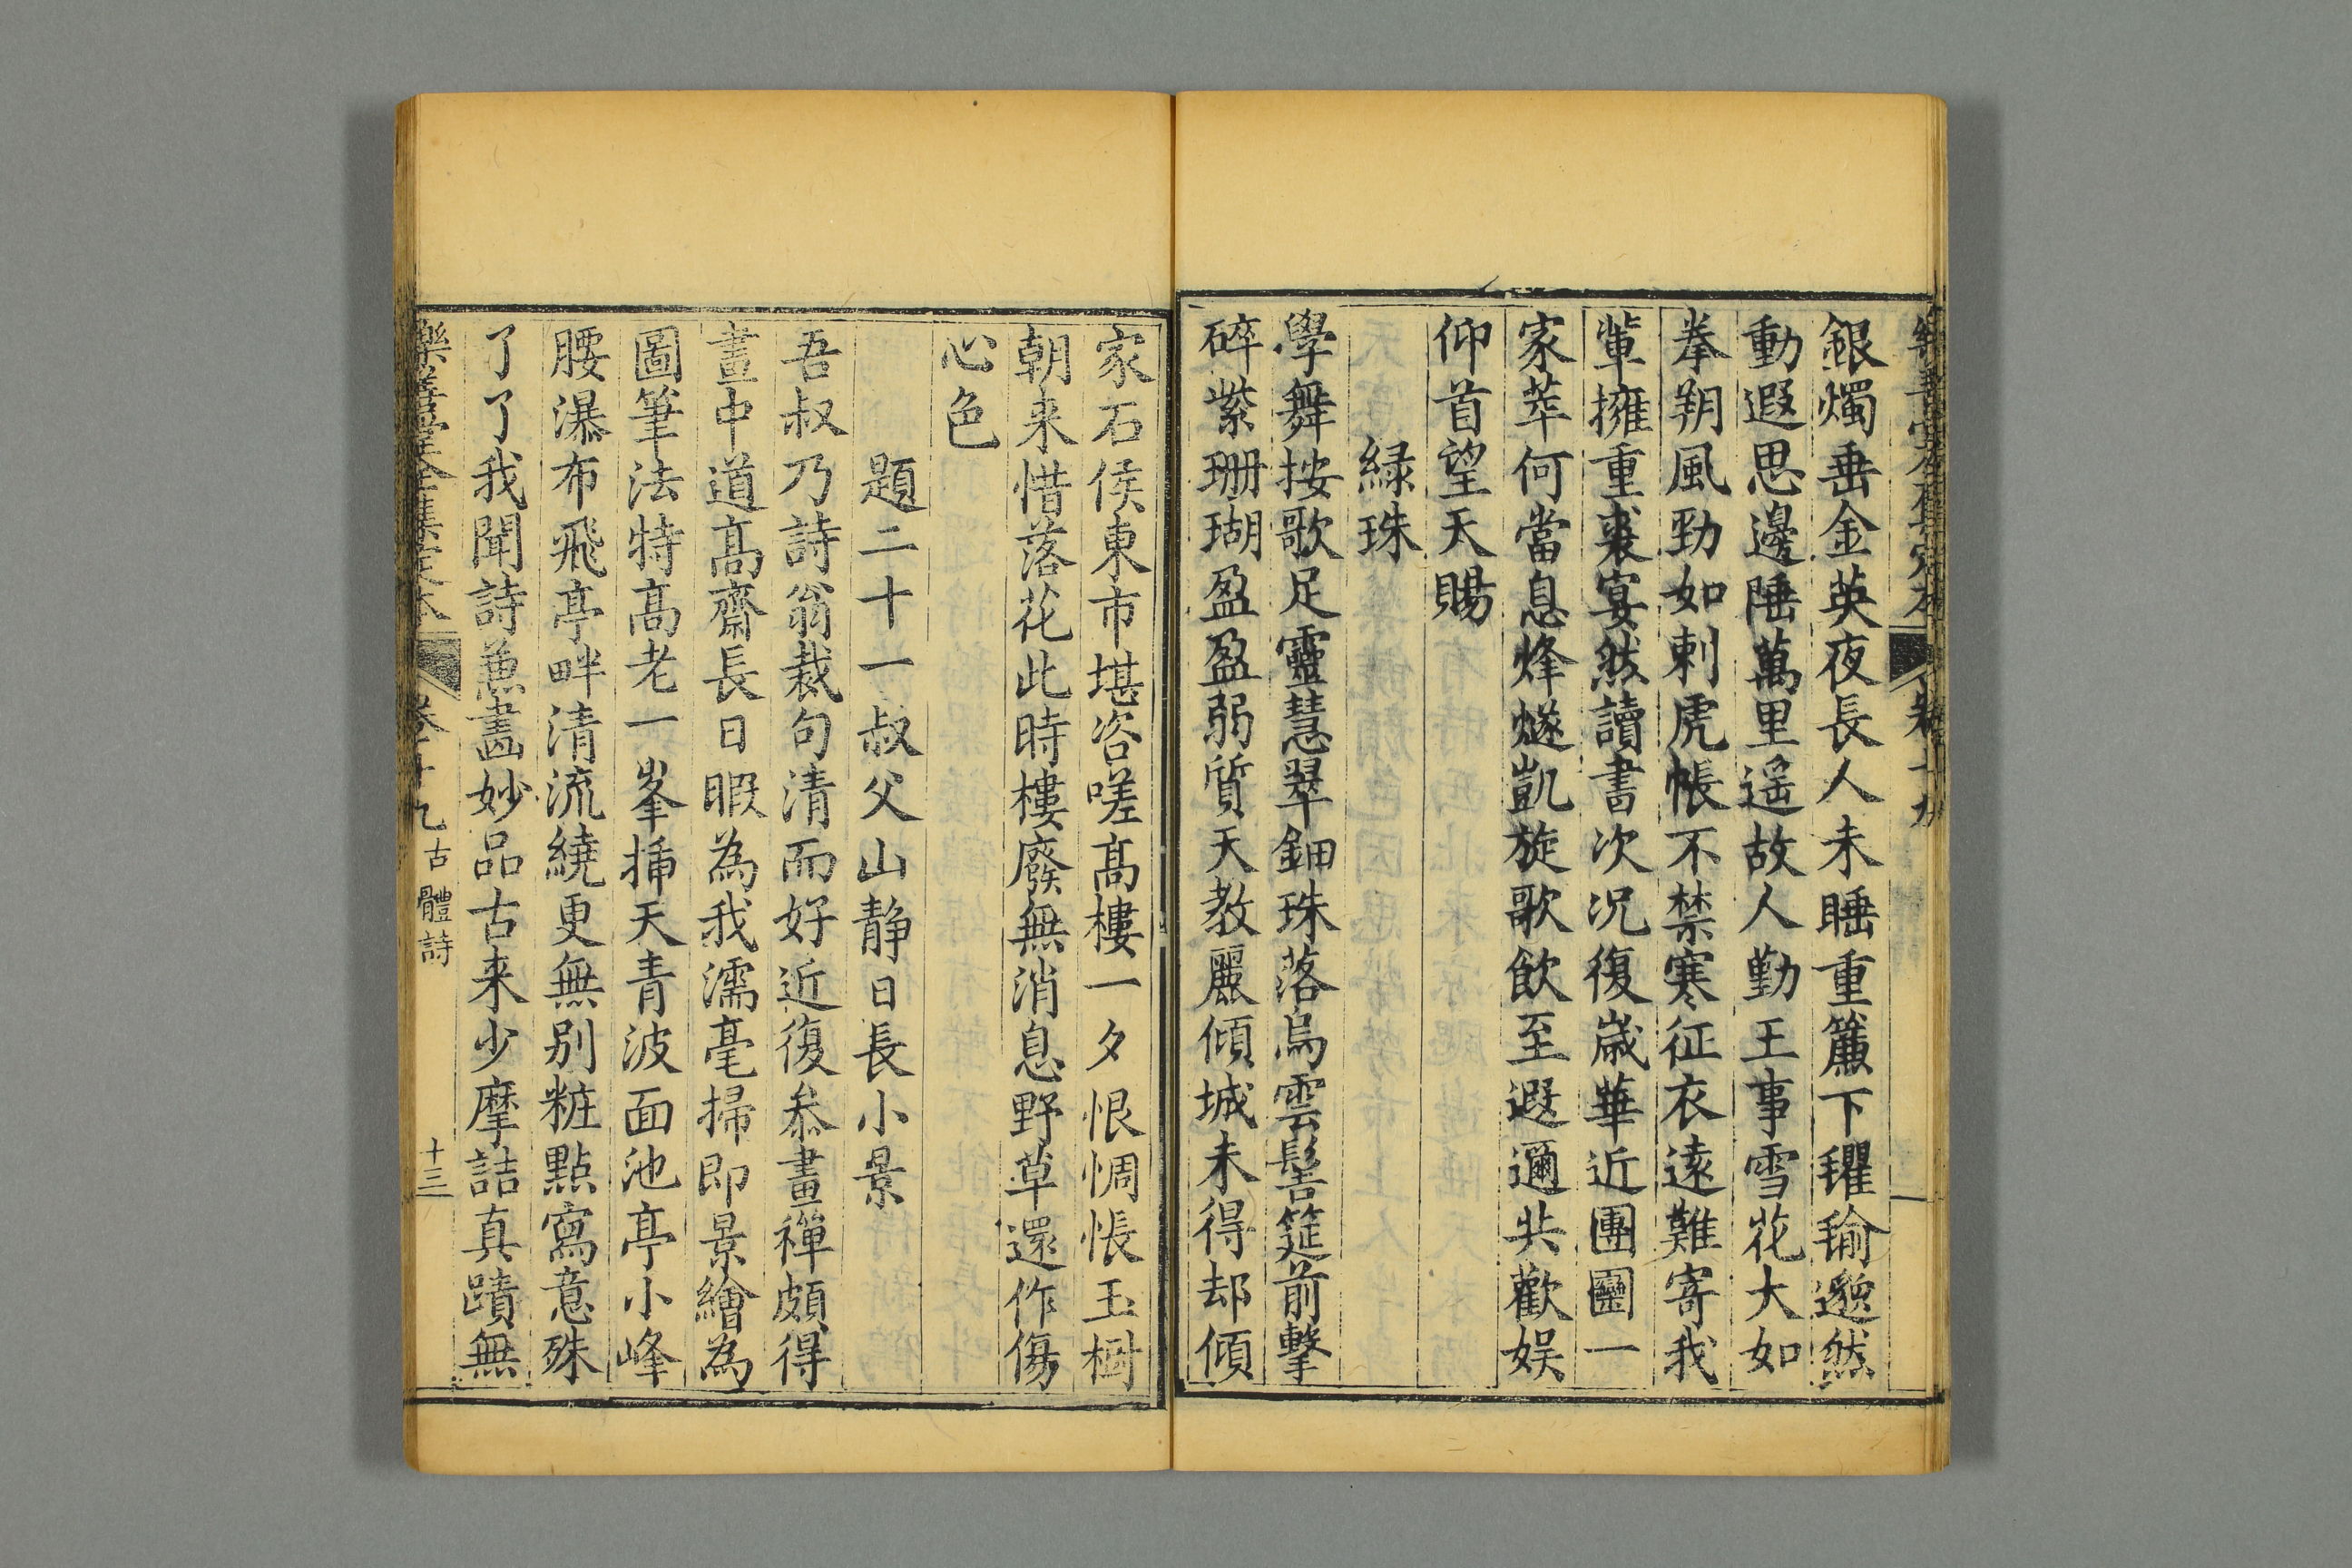 銀燭垂金英夜長人未睡重簾下氍毹邈然
動遐思邊陲萬里遥故人勤王事雪花大如
拳朔風勁如刺虎帳不禁寒征衣遠難寄我
輩擁重裘宴然讀書次况復嵗華近團圞一
家萃何當息烽燧凱旋歌飲至遐邇共歡娱
仰首望天賜
緑珠
學舞按歌足靈慧翠鈿珠落烏雲髻筵前擊
碎紫珊瑚盈盈弱質天教麗傾城未得却傾
家石侯東市堪咨嗟髙樓一夕恨惆悵玉樹
朝来惜落花此時樓廢無消息野草還作傷
心色
題二十一叔父山静日長小景
吾叔乃詩翁裁句清而好近復叅畫禪頗得
畫中道髙齋長日暇為我濡毫掃即景繪為
圖筆法特髙老一峯揷天青波面池亭小峰
腰瀑布飛亭畔清流繞更無别粧點寫意殊
了了我聞詩兼畫妙品古来少摩詰真蹟無
樂善堂全集定本 卷十九 古體詩 十三